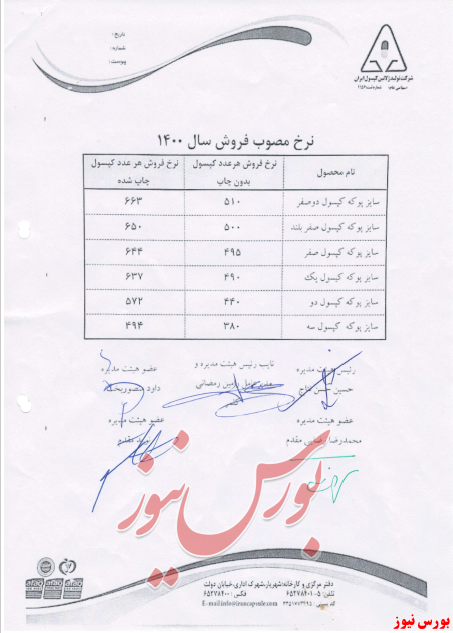 تاریخ:
شماره:
پیوست:
شرکت تولید ژلاتین کپسول ایران
(سهامی عام)
نرخ مصوب فروش سال ۱۴۰۰
نام محصول
نرخ فروش هرعدد کپسول بدون چاپ
نرخ فروش هر عدد کپسول چاپ شده
سایز پوکه کپسول دوصفر ۵۱۰ ۶۶۳
سایز پوکه کپسول صفر بلند ۵۰۰ ۶۵۰
سایز پوکه کپسول صفر ۴۹۵ ۶۴۴
سایز پوکه کپسول یک ۴۹۰ ۶۳۷
سایز پوکه کپسول دو ۴۴۰ ۵۷۲
سایز پوکه کپسول سه ۳۸۰ ۴۹۴
رئیس هیئت مدیره
نایب رئیس هیئت مدیره و
عضو هیئت مدیره
حسین
رمضانی
داود
عضو هیئت مدیره
عضو هیئت مدیره
محمدرضا مقدم
مقدم
بورس نیوز
دفتر مرکزی و کارخانه: شهریار، شهرک اداری، خیابان دولت
تلفن: ۰۵-۶۵۲۷۸۴۰۱ فکس: ۶۵۲۷۸۴۰۰
E-mail:info@irancapsule.com
بورس نیوز